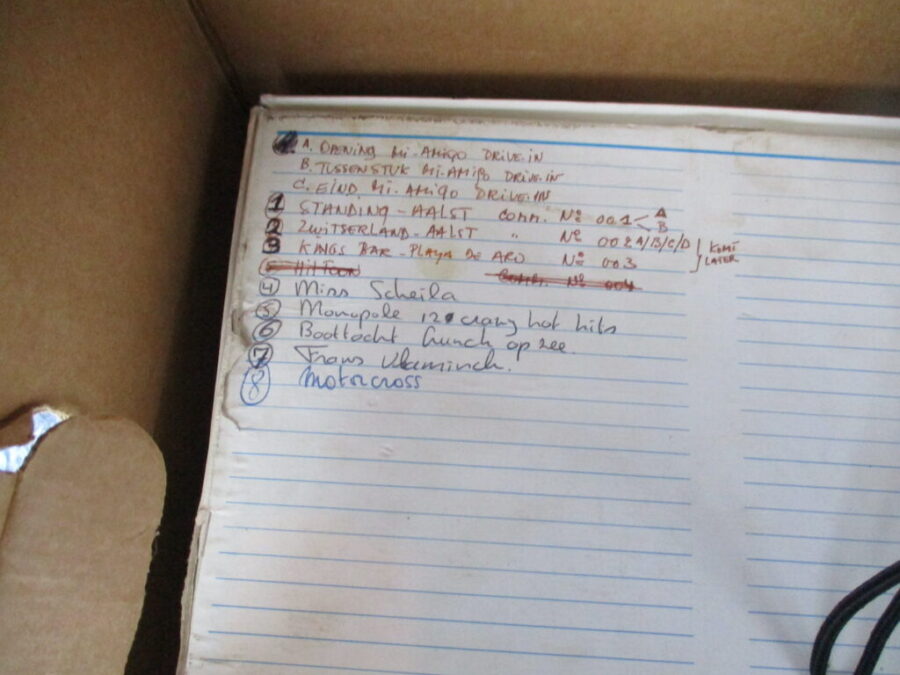 A. OPENING MI-AMIGO DRIVE-IN
B. TUSSENSTUK MI-AMIGO DRIVE-IN
C. EIND MI-AMIGO DRIVE-IN
1 STANDING-AALST comm. Nº 001 A B
2 ZWITSERLAND-AALST " Nº 002 A/B/C/D
3 KINGS BAR-PLAYA DE ARO Nº 003 KOMT LATER
Hit Toon Comm. Nº 004
4 Miss Scheila
5 Monopole 12 crazy hot hits
6 Boottocht op zee.
7 Frans
8 Motorcross